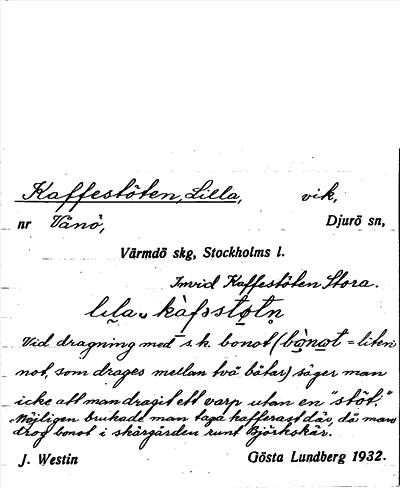 Kaffestöten, Lilla, vik,
nr Vånö, Djurö sn,
Värmdö skg, Stockholms l.
Invid Kaffestöten Stora.
Vid dragning med s.k. bonot (bònot = liten
not, som drages mellan två båtar) säger man
icke att man dragit ett varp utan en "stöt."
Möjligen brukade man taga kafferast där, då man
drog bonot i skärgården runt Björkskär.
J. Westin Gösta Lundberg 1932.